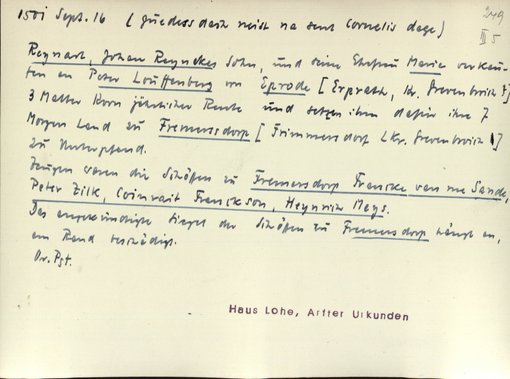 1501 Sept. 16 (guedesdach neist na sent Cornelis dage)
249
III 5
Reynart, Johan Reynckes Sohn, und seine Ehefrau Maria verkau-
fen an Peter Louffenberg von Eprode [Erprath, Kr. Grevenbroich?]
3 Malter Korn jährlicher Rente und setzen ihm dafür ihre 7
Morgen Land zu Fremersdorp [Frimmersdorf Lkr. Grevenbroich]
zu Unterpfand.
Zeugen waren die Schöffen zu Fremersdorp Francke van me Sande,
Peter Zilk, Coinrait Franckson, Heynrich Meys.
Das angekündigte Siegel der Schöffen zu Fremersdorp hängt an,
am Rand beschädigt.
Or. Pgt.
Haus Lohe, Artter Urkunden